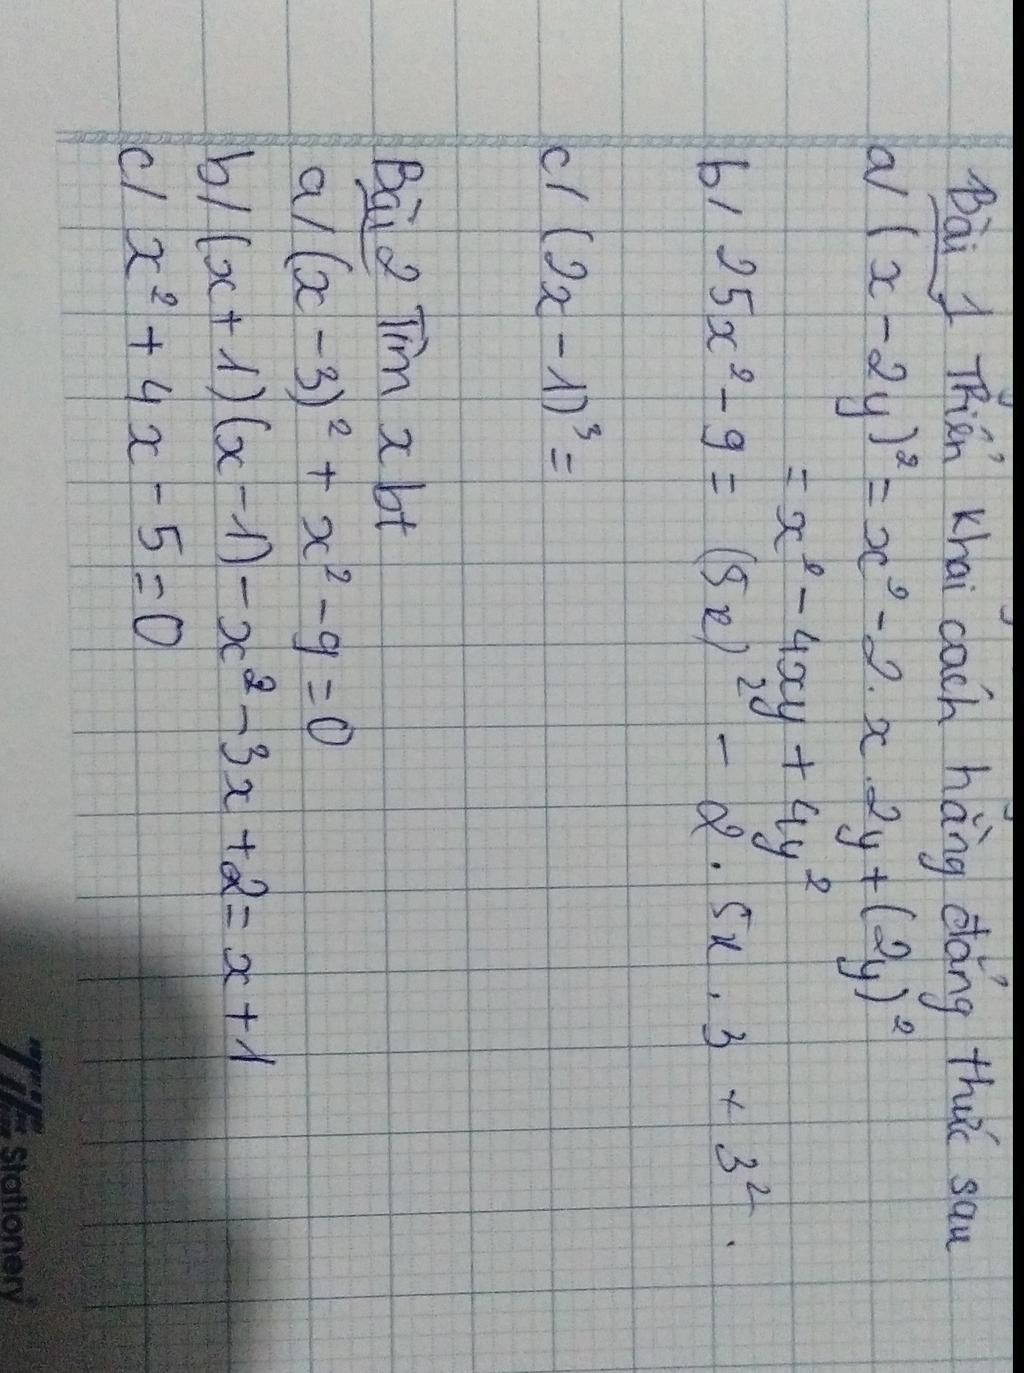 Bài 1 Thiển khai cách hằng đẳng thức sau
a/ (x - 2y)² = x² - 2. x . 2y + (2y)²
= x² - 4xy + 4y²
b/ 25x² - 9 = (5x)² - 2 . 5x . 3 + 3² .
c/ (2x - 1)³ =
Bài 2 Tìm x bt
a/ (x - 3)² + x² - 9 = 0
b/ (x + 1)(x - 1) - x² - 3x + 2 = x + 1
c/ x² + 4x - 5 = 0
Stationery